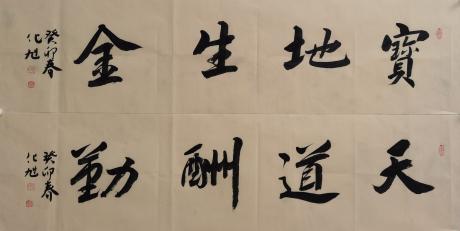 寳地生金
癸卯春
化旭
天道酬勤
癸卯春
化旭